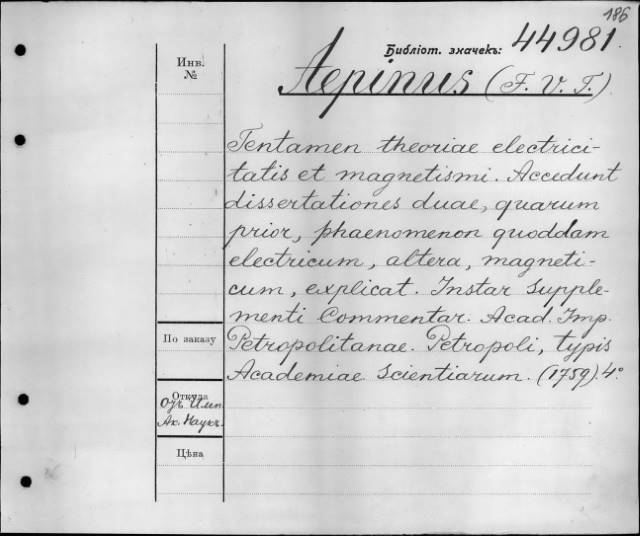 186
Библіот. значекъ: 44981.
Инв.
№
Aepinus (F. V. T.)
Tentamen theoriae electrici-
tatis et magnetismi. Accedunt
dissertationes duae, quarum
prior, phaenomenon quoddam
electricum, altera, magneti-
cum, explicat. Instar supple-
menti Commentar. Acad. Imp.
Petropolitanae. Petropoli, typis
Academiae Scientiarum. (1759). 4°
По заказу
Откуда
Отъ Имп.
Ак. Наукъ.
Цѣна